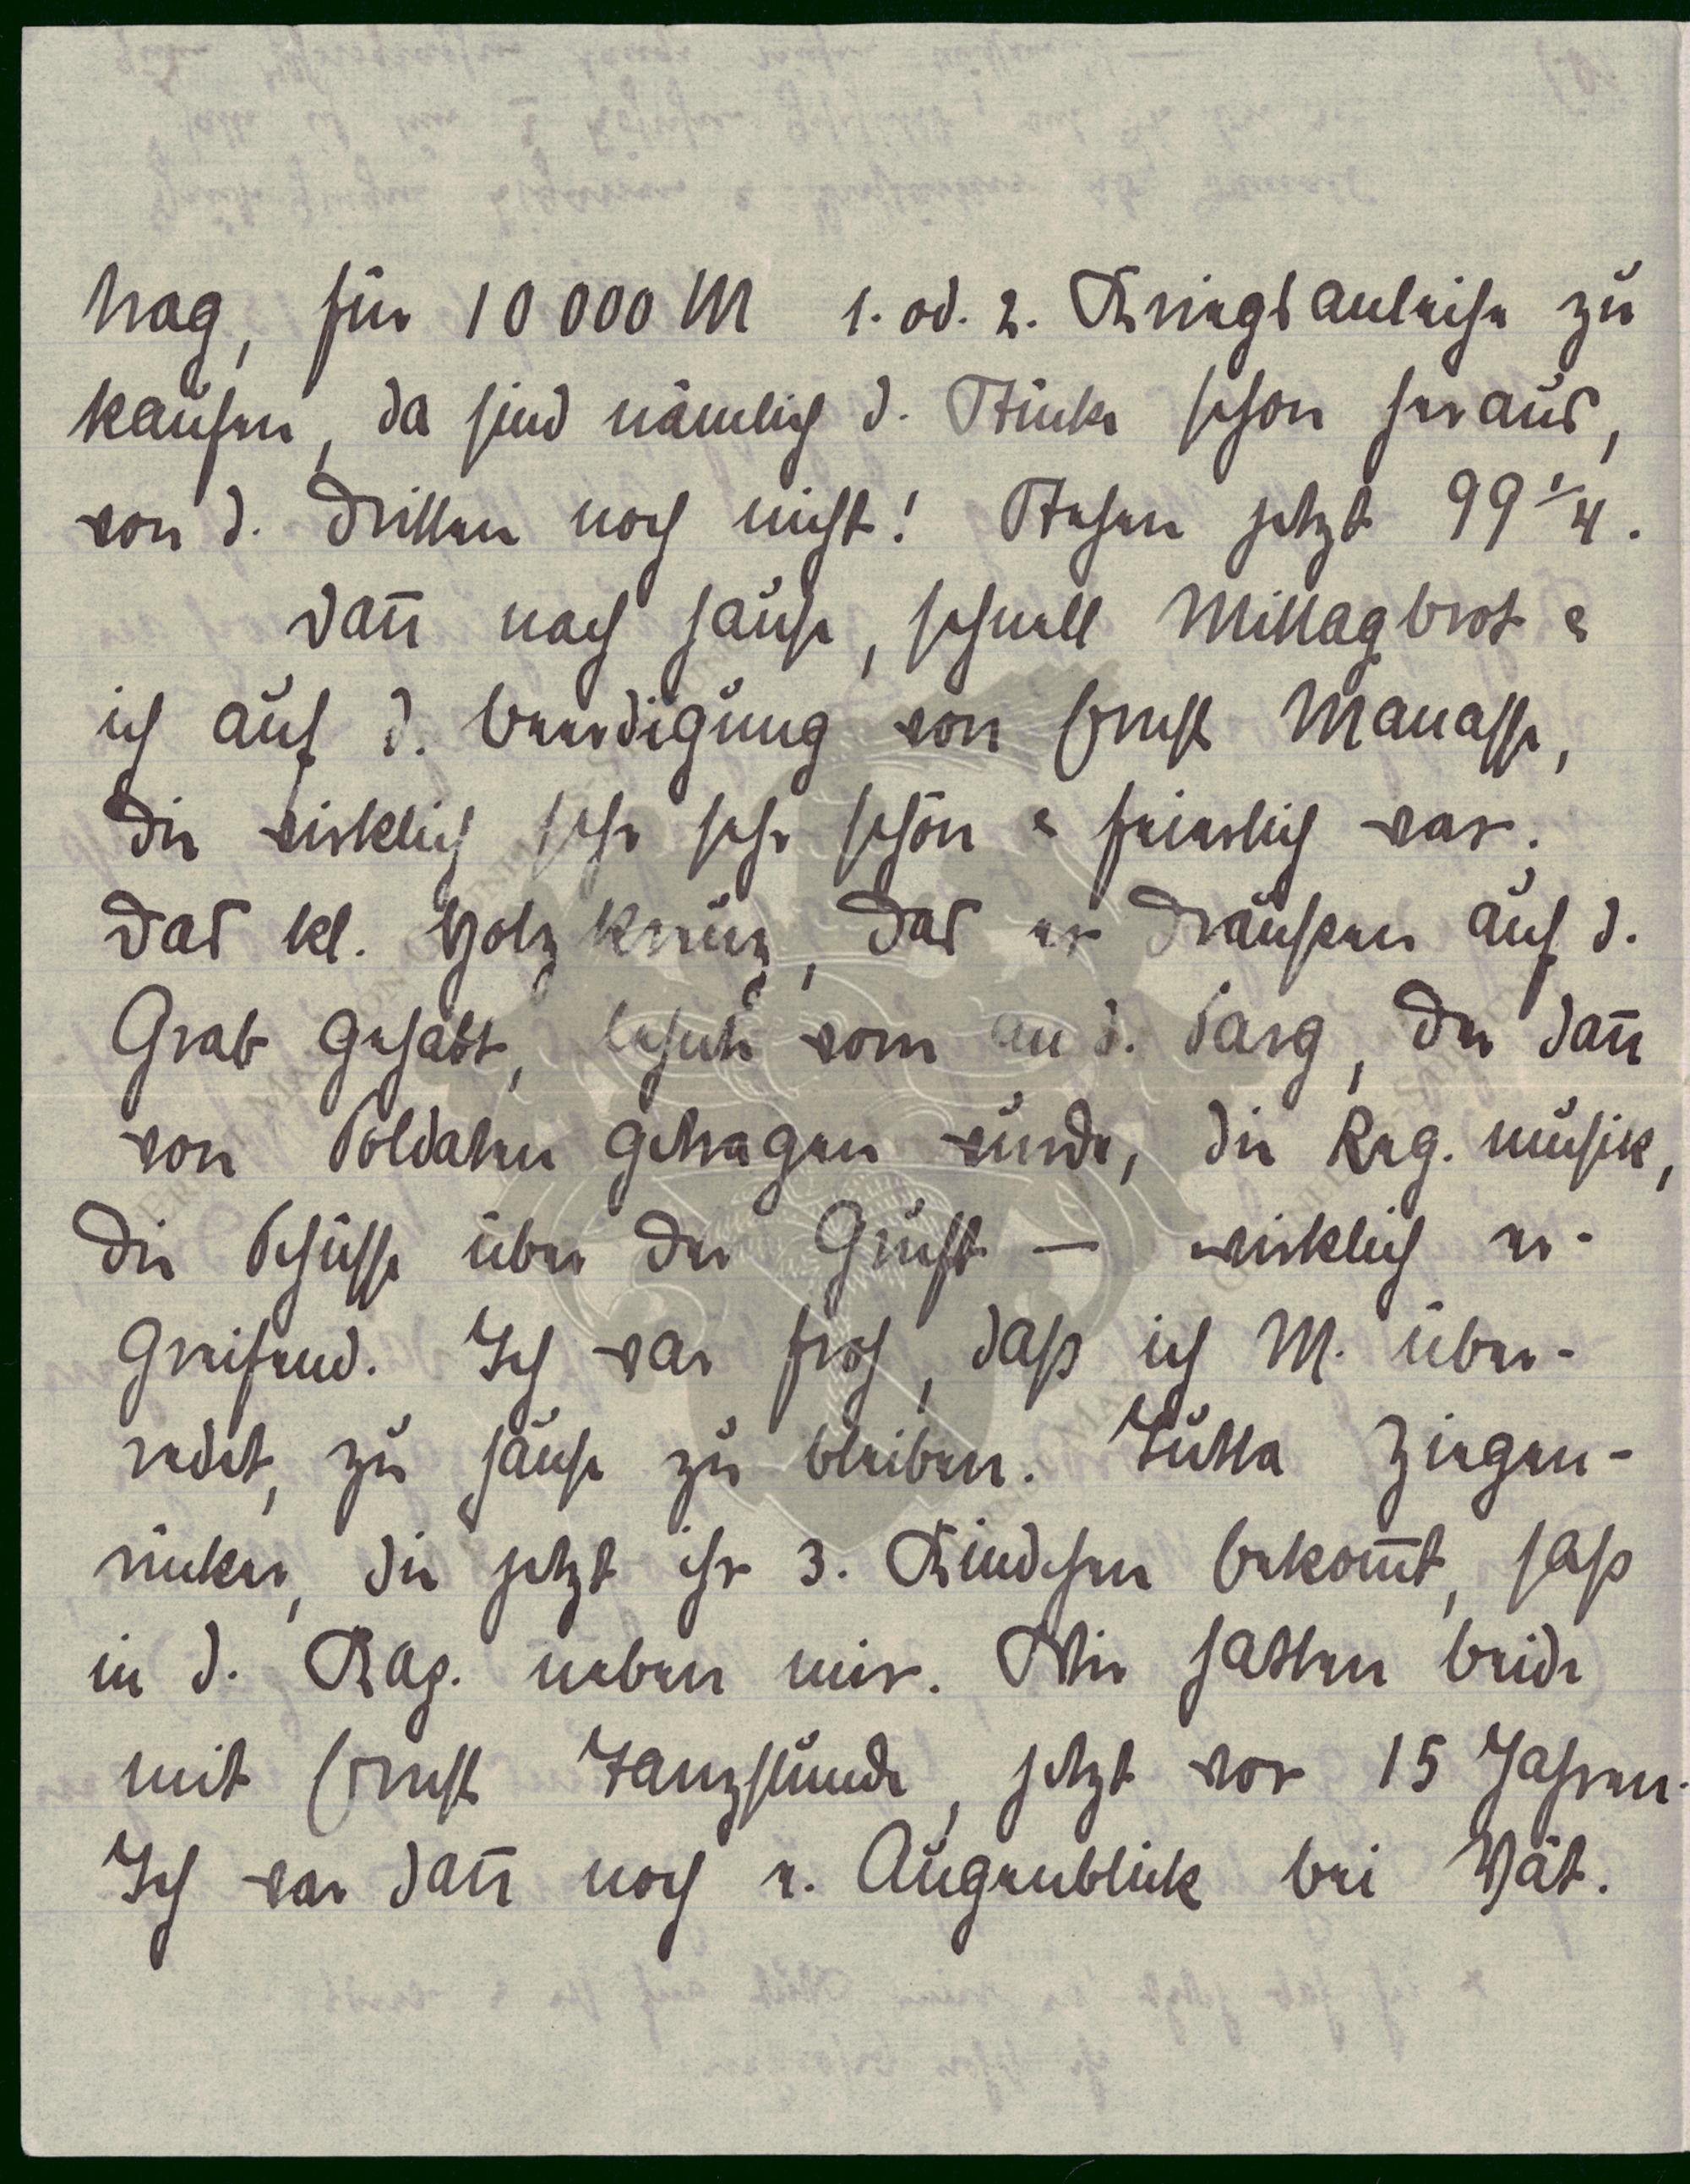 trag, für 10 000 M 1. od. 2. Kriegsanleihe zu
kaufen, da sind nämlich d. Stücke schon heraus,
von d. dritten noch nicht! Stehen jetzt 99 1/4.
Dan̄ nach Hause, schnell Mittagbrot &
ich auf d. Beerdigung von Ernst Manasse,
die wirklich sehr sehr schön & feierlich war.
Das kl. Holzkreuz, das er draußen auf d.
Grab gehabt, lehnte vorn an d. Sarg, der dan̄
von Soldaten getragen wurde, die Reg. musik,
die Schüsse über der Gruft — wirklich er-
greifend. Ich war froh, daß ich M. über-
redet, zu Hause zu bleiben. Jutta Ziegen-
rücker, die jetzt ihr 3. Kindchen bekom̄t, saß
in d. Kap. neben mir. Wir hatten beide
mit Ernst Tanzstunde, jetzt vor 15 Jahren.
Ich war dan̄ noch e. Augenblick bei